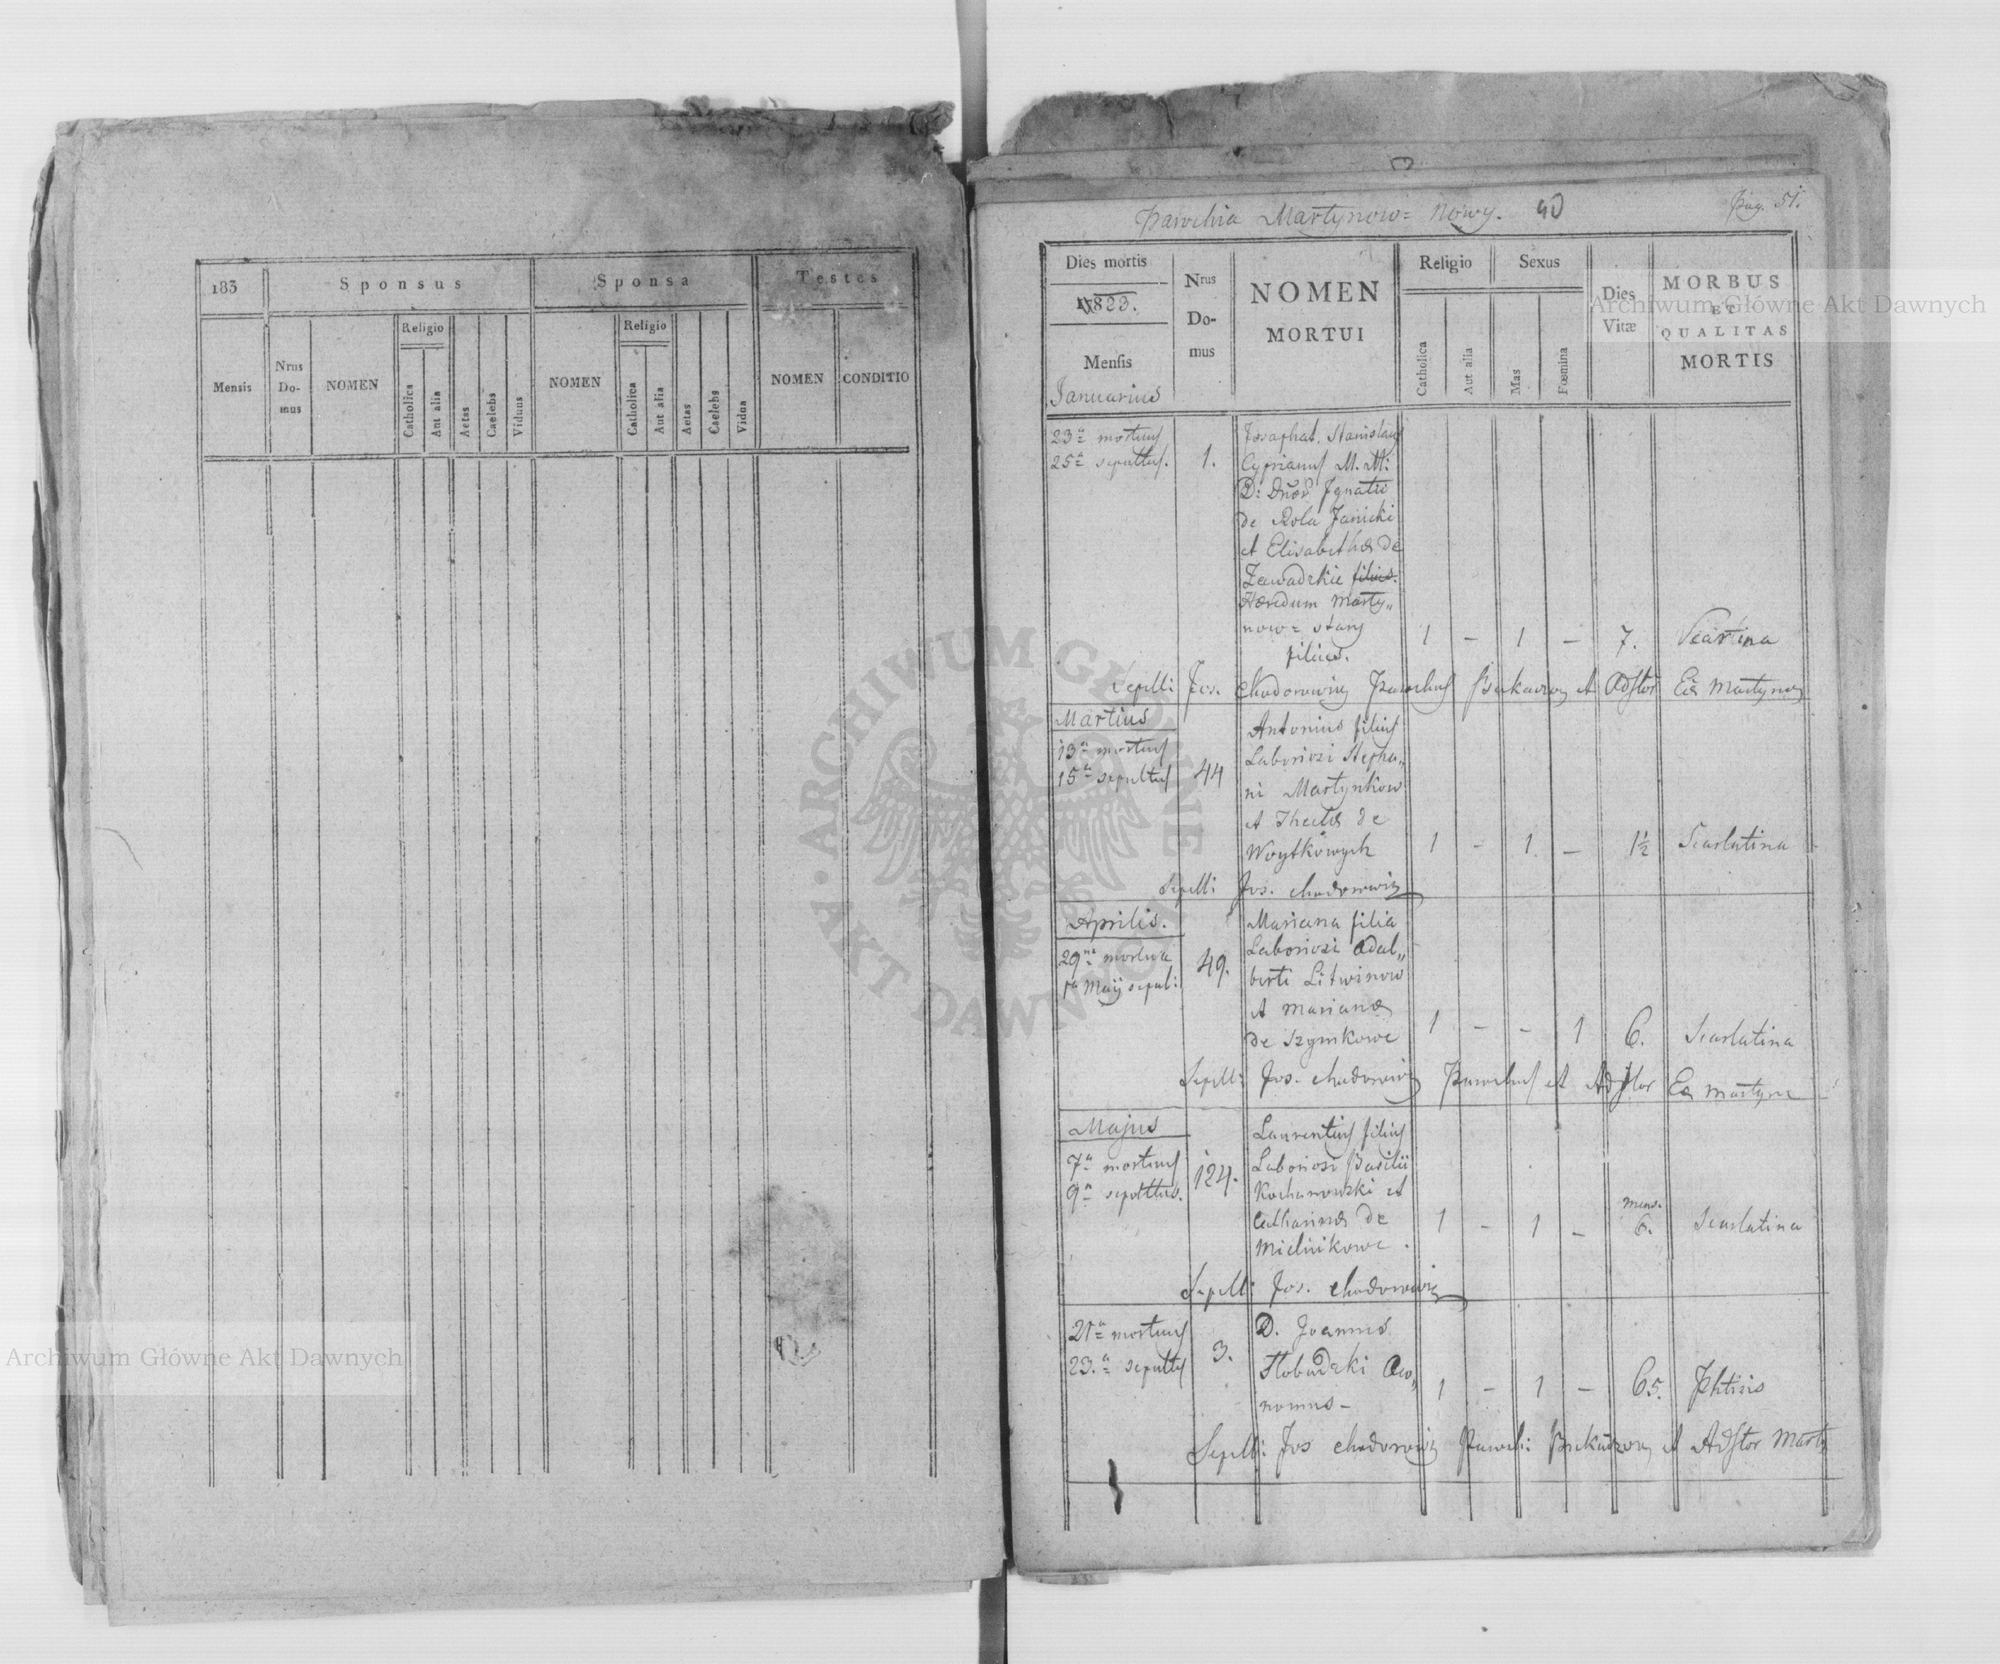 183
Sponsus
Sponsa
Testes
Mensis
Nrus Do-mus
NOMEN
Religio
Catholica
Aut alia
Aetas
Caelebs
Viduus
NOMEN
Religio
Catholica
Aut alia
Aetas
Caelebs
Vidua
NOMEN
CONDITIO
Parochia Martynow= Nowy. 40
Pag. 51.
Dies mortis
1823.
Mensis
Januarius
Nrus
Do-
mus
NOMEN
MORTUI
Religio
Catholica
Aut alia
Sexus
Mas
Fœmina
Dies
Vitæ
MORBUS
ET
QUALITAS
MORTIS
23a mortuus
25a sepultus.
1.
Josaphat Stanislaus
Cyprianus M. M:
D: Ignatii
de Rola Janicki
et Elisabethæ de
Zawadzkie filius.
Hæredum Marty„
now= stary
filius.
1 - 1 - 7.
Sepelli Jos. Chodorowicz Parochus Bukaczow et Adstor Eæ Martynow
Martius
13a mortuus
15a sepultus
44
Antonius filius
Laboriosi Stepha„
ni Martynkow
et Theclæ de
Woytkowych
1 - 1 - 1½ Scarlatina
Sepelli Jos. Chodorowicz
Aprilis.
29na mortua
1a Maij sepul:
49.
Mariana filia
Laboriosi Adal„
berti Litwinow
et Marianæ
de Szymkowe
1 - - 1 6. Scarlatina
Sepelli Jos. Chodorowicz Parochus et Adstor Eæ Martyn
Majus
7a mortuus
9a sepultus.
124.
Laurentius filius
Laboriosi Basilii
Kochanowski et
Catharinæ de
Mielnikowe.
1 - 1 - mens. 6. Scarlatina
Sepelli Jos. Chodorowicz
21a mortuus
23.a sepultus
3.
D. Joannes
Slobudzki Oeco„
nomus -
1 - 1 - 65. Phtisis
Sepelli: Jos Chodorowicz Paroch: Bukaczow et Adstor Marty
Archiwum Główne Akt Dawnych
Archiwum Główne Akt Dawnych
ARCHIWUM GŁÓWNE
AKT DAWNYCH